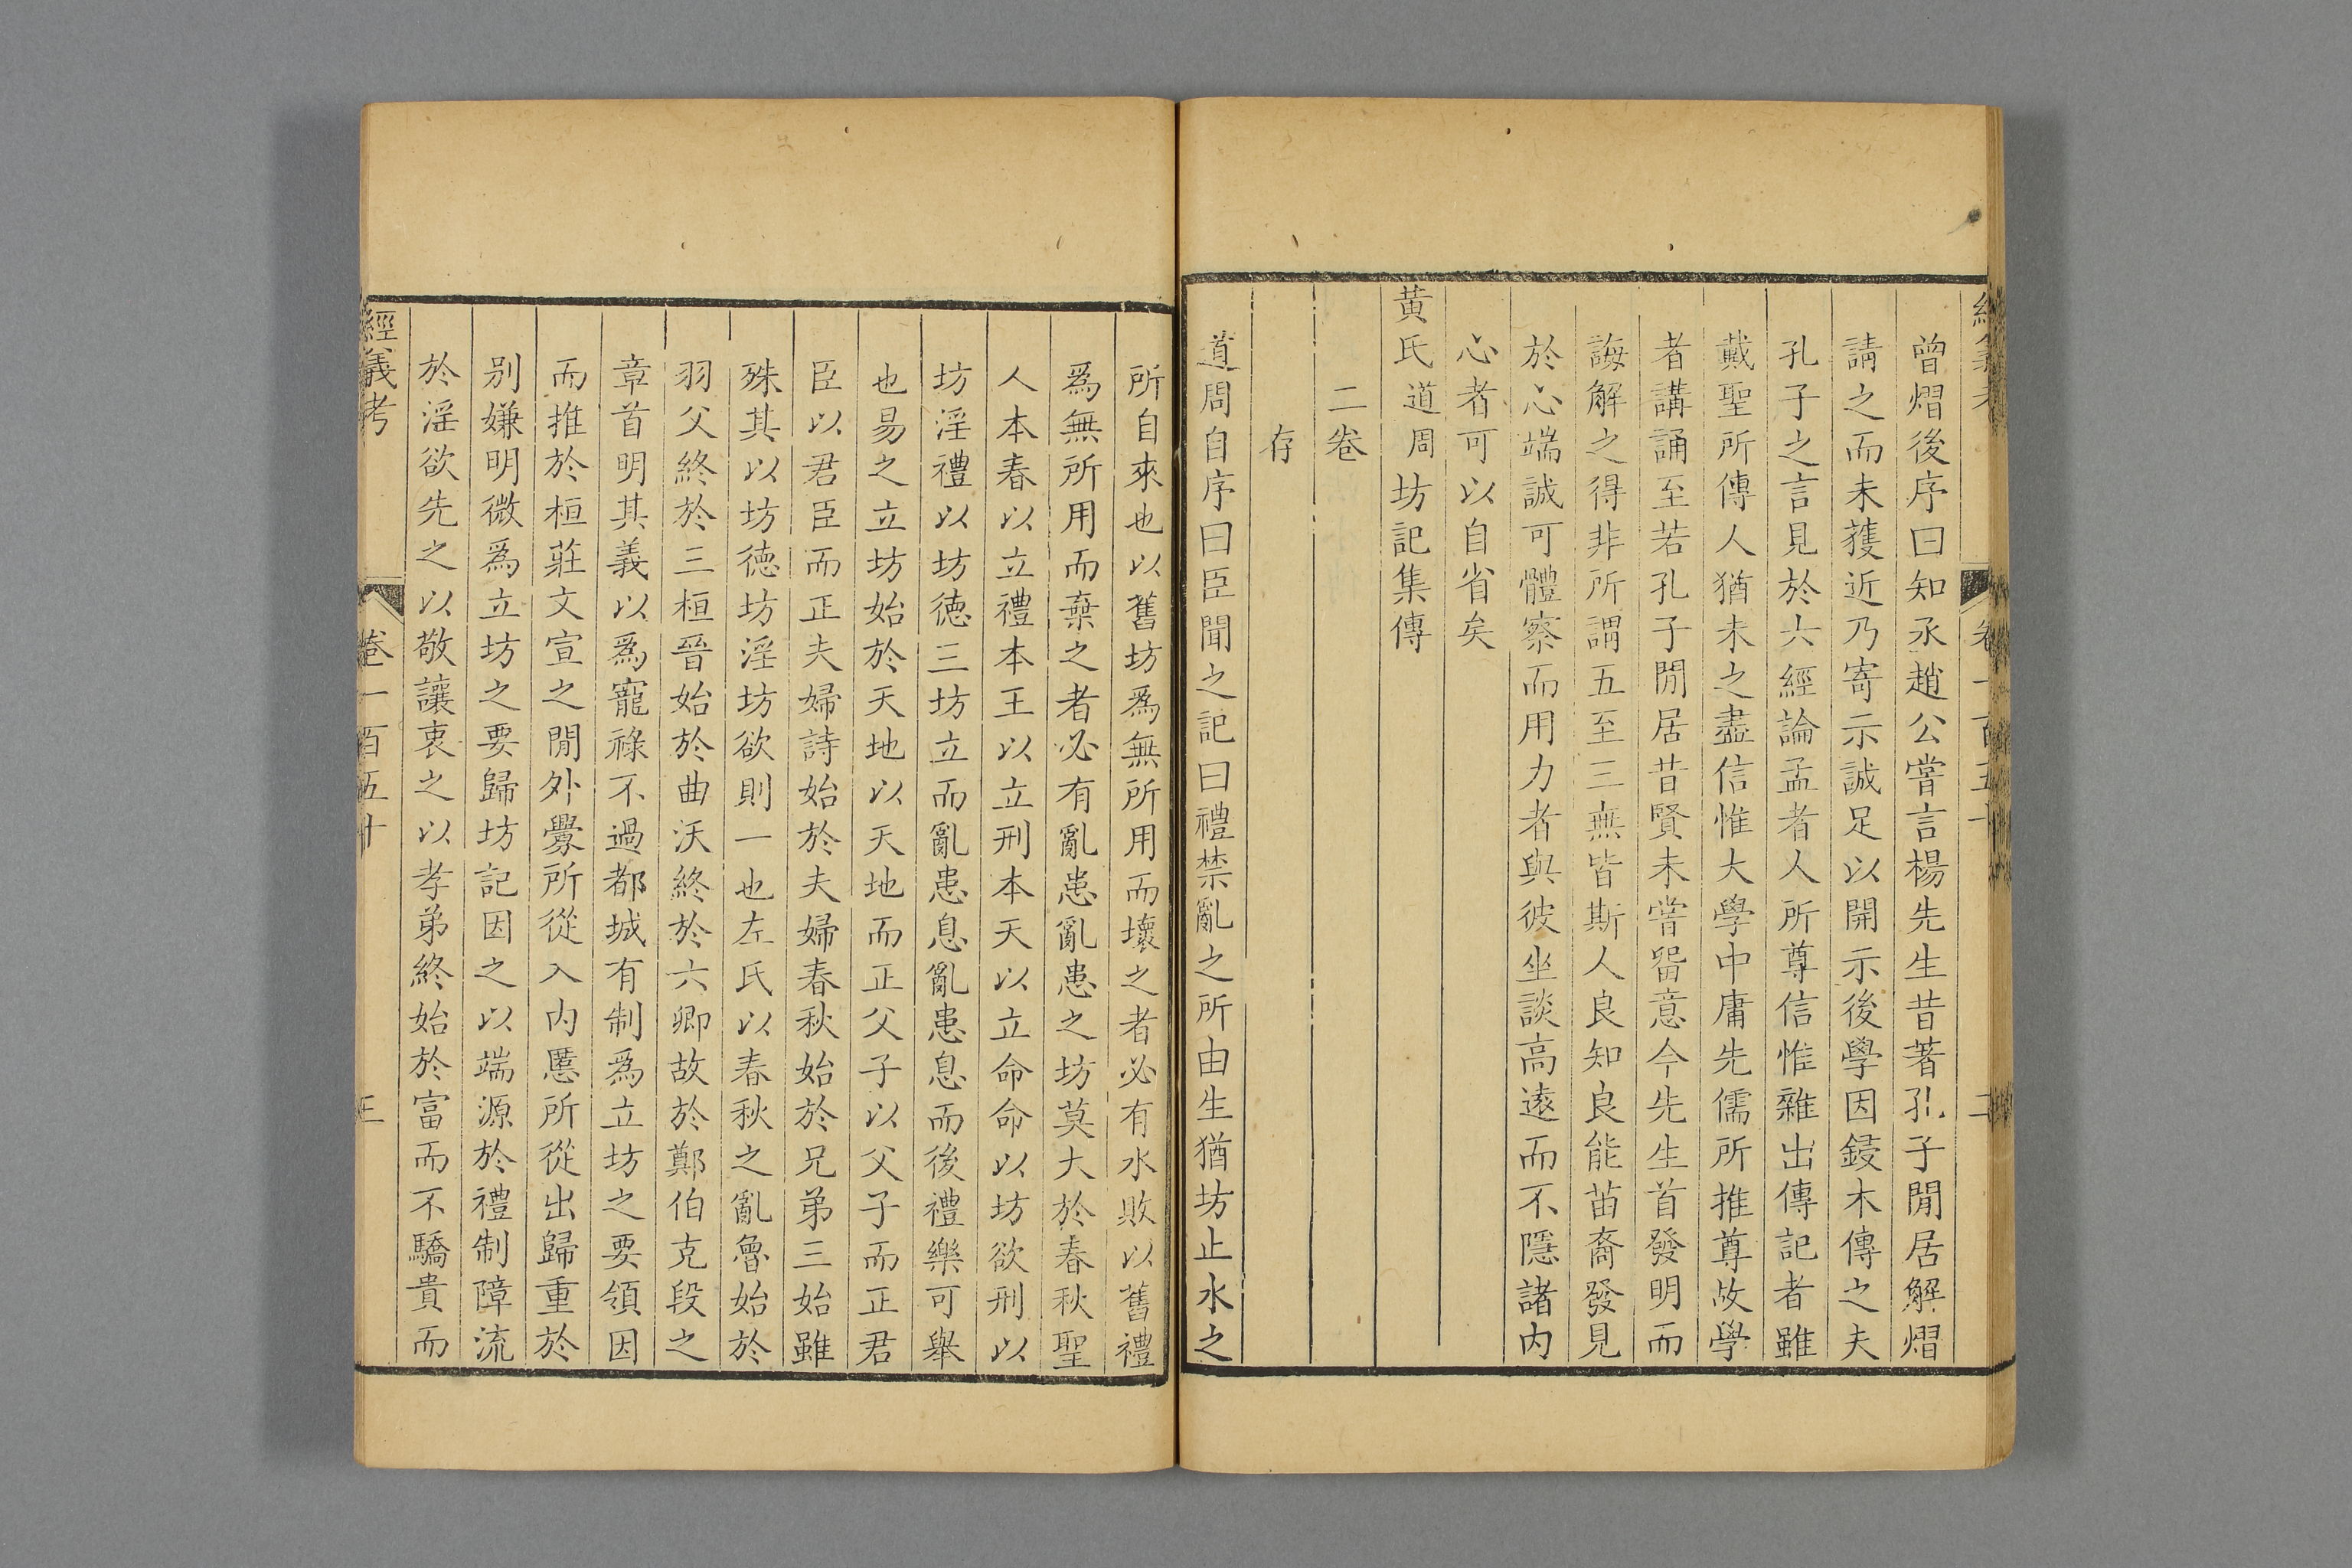 曾熠後序曰知丞趙公嘗言楊先生昔著孔子閒居解熠
請之而未獲近乃寄示誠足以開示後學因鋟木傳之夫
孔子之言見於六經論孟者人所尊信惟雜出傳記者雖
戴聖所傳人猶未之盡信惟大學中庸先儒所推尊故學
者講誦至若孔子閒居昔賢未嘗留意今先生首發明而
誨解之得非所謂五至三無皆斯人良知良能苗裔發見
於心端誠可體察而用力者與彼坐談高遠而不隱諸内
心者可以自省矣
黃氏道周坊記集傳
二卷
存
道周自序曰臣聞之記曰禮禁亂之所由生猶坊止水之
所自來也以舊坊爲無所用而壞之者必有水敗以舊禮
爲無所用而棄之者必有亂患亂患之坊莫大於春秋聖
人本春以立禮本王以立刑本天以立命命以坊欲刑以
坊淫禮以坊德三坊立而亂患息亂患息而後禮樂可舉
也易之立坊始於天地以天地而正父子以父子而正君
臣以君臣而正夫婦詩始於夫婦春秋始於兄弟三始雖
殊其以坊德坊淫坊欲則一也左氏以春秋之亂魯始於
羽父終於三桓晉始於曲沃終於六卿故於鄭伯克段之
章首明其義以爲寵祿不過都城有制爲立坊之要領因
而推於桓莊文宣之閒外釁所從入内慝所從出歸重於
别嫌明微爲立坊之要歸坊記因之以端源於禮制障流
於淫欲先之以敬讓衷之以孝弟終始於富而不驕貴而
經義考 卷一百五十 三